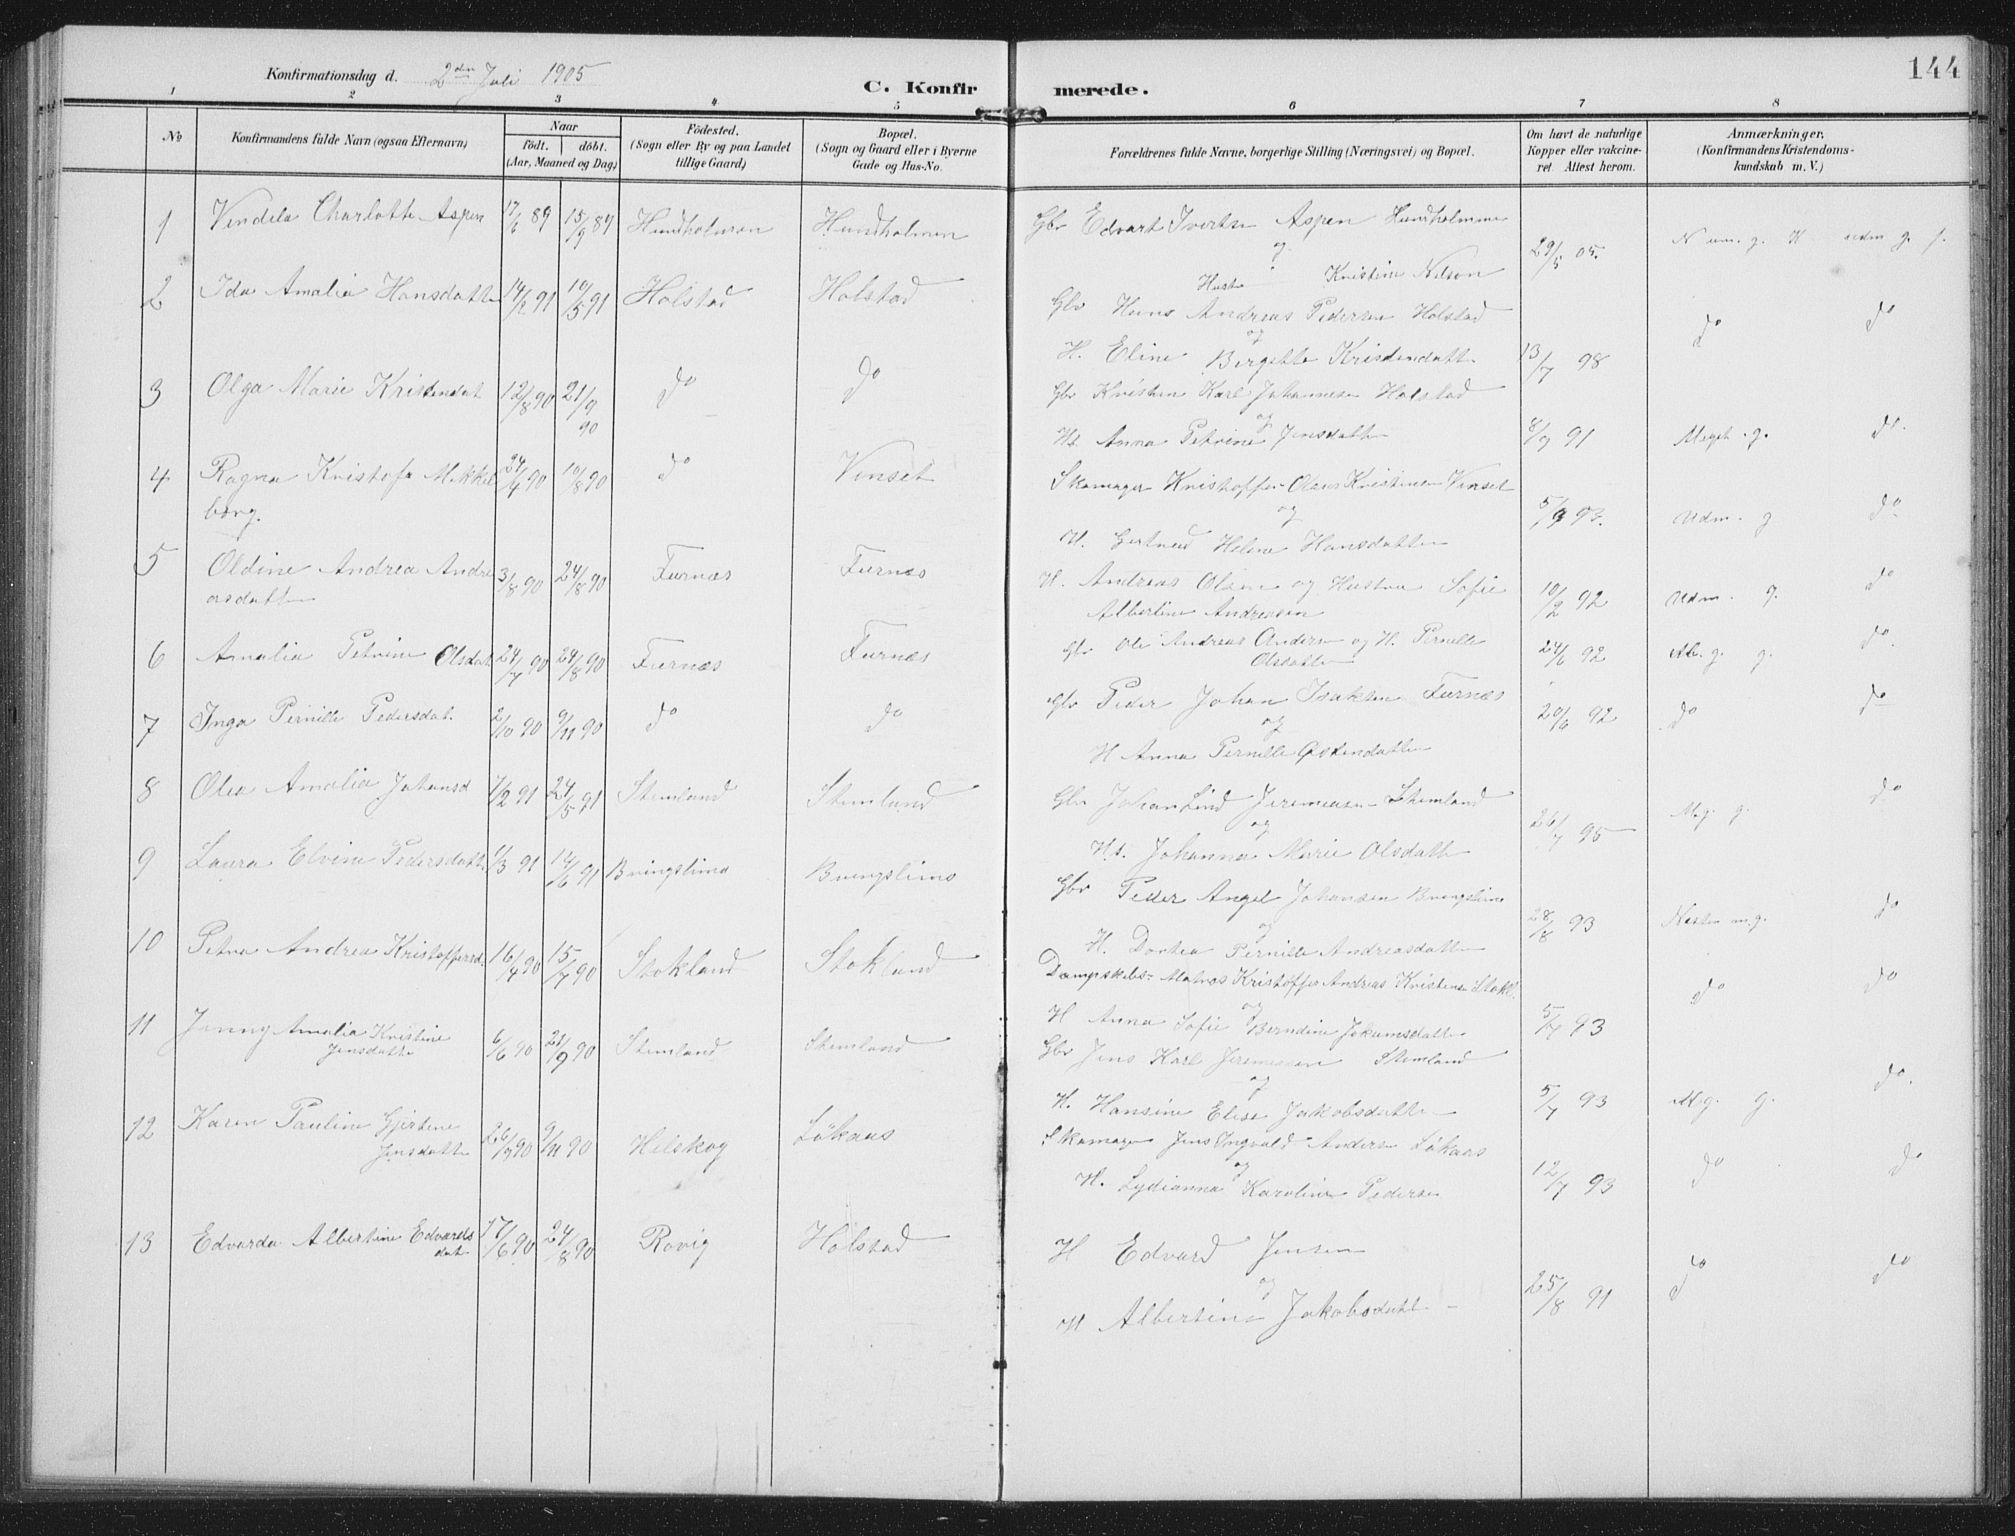 144
Konfirmationsdag d. 2den Juli 1905
C. Konfirmerede.
1 2 3 4 5 6 7 8
№
Konfirmandens fulde Navn (ogsaa Efternavn)
Naar
født. døbt.
(Aar, Maaned og Dag)
Födested.
(Sogn eller By og paa Landet
tillige Gaard)
Bopæl.
(Sogn og Gaard eller i Byerne
Gade og Hus-No.
Forældrenes fulde Navne, borgerlige Stilling (Næringsvei) og Bopæl.
Om havt de naturlige
Kopper eller vakcine-
ret. Attest herom.
Anmærkninger.
(Konfirmandens Kristendoms-
kundskab m. V.)
1 Vendela Charlotte Aspen 17/6 89 15/9 89 Hundholmen Hundholmen Gbr Edvart Ivertsen Aspen Hundholmen
og
Hustr Kristine Nilson 29/5 05.
2 Ida Amalia Hansdatte 14/2 91 10/5 91 Holstad Holstad Gbr Hans Andreas Pedersen Holstad do do
og
H. Eline Bergette Kristendatt 13/7 98
3 Olga Marie Kristendat 12/8 90 21/9 90 do do Gbr Kristen Karl Johannesen Holstad
og
H. Anna Petrine Jensdatte 8/7 91 Meget g. do.
4 Ragna Kristofa Mikkel 24/4 90 10/8 90 do Vinset Skomager Kristoffer Olaus Kristinsen Vinset
borg.
og
H. Gertrud Helene Hansdatte 5/9 93. Udm. g do
5 Oldine Andrea Andre 3/8 90 24/8 90 Furnæs Furnæs H. Andreas Olsen og Hustru Sofie
asdatte Albertine Andreasen 10/2 92 Udm. g. do
6 Amalia Petrine Olsdat 24/7 90 24/8 90 Furnæs Furnæs Gbr Ole Andreas Andersen og H. Pernille
Olsdatte 24/6 92 g. do.
7 Inga Pernille Pedersdat. 2/10 90 9/11 90 do do Gbr Peder Johan Isaksen Furnæs
og
H Anna Pernille Østendatte 20/6 92 do do
8 Olea Amalia Johansd 7/2 91 24/5 91 Stemland Stemland Gbr Johan Lind Jeremiasen Stemland
og
H. Johanna Marie Olsdatt 26/7 95 Meg. g. do
9 Laura Elvine Pedersdatt 1/3 91 14/6 91 Bringslimo Bringslimo Gbr Peder Angel Johansen Bringslimo
og
H. Dortea Pernille Andreasdatt 28/8 93 Næsten m. g. do
10 Petra Andrea Kristoffersd. 16/4 90 15/7 90 Stokland Stokland Dampskibs- Matros Kristoffer Andreas Kristensen Stokl. do do
og
H Anna Sofie Berndine Jokumsdatt 5/7 93
11 Jenny Amalia Kristine
Jensdatte 6/6 90 21/9 90 Stemland Stemland Gbr Jens Karl Jeremiasen Stemland
og
H. Hansine Elise Jakobsdatte 5/7 93 Mg. g. do.
12 Karen Pauline Gjertine
Jensdatte 26/9 90 9/11 90 Helskog Løkaas Skomager Jens Ingvald Andersen Løkaas
og
H. Lydianna Karoline Pedersen 12/7 93 do do
13 Edvarda Albertine Edvards
dat 17/6 90 24/8 90 Rovig Holstad H Edvard Jensen
og
H Albertine Jakobsdatt 25/8 91 do do